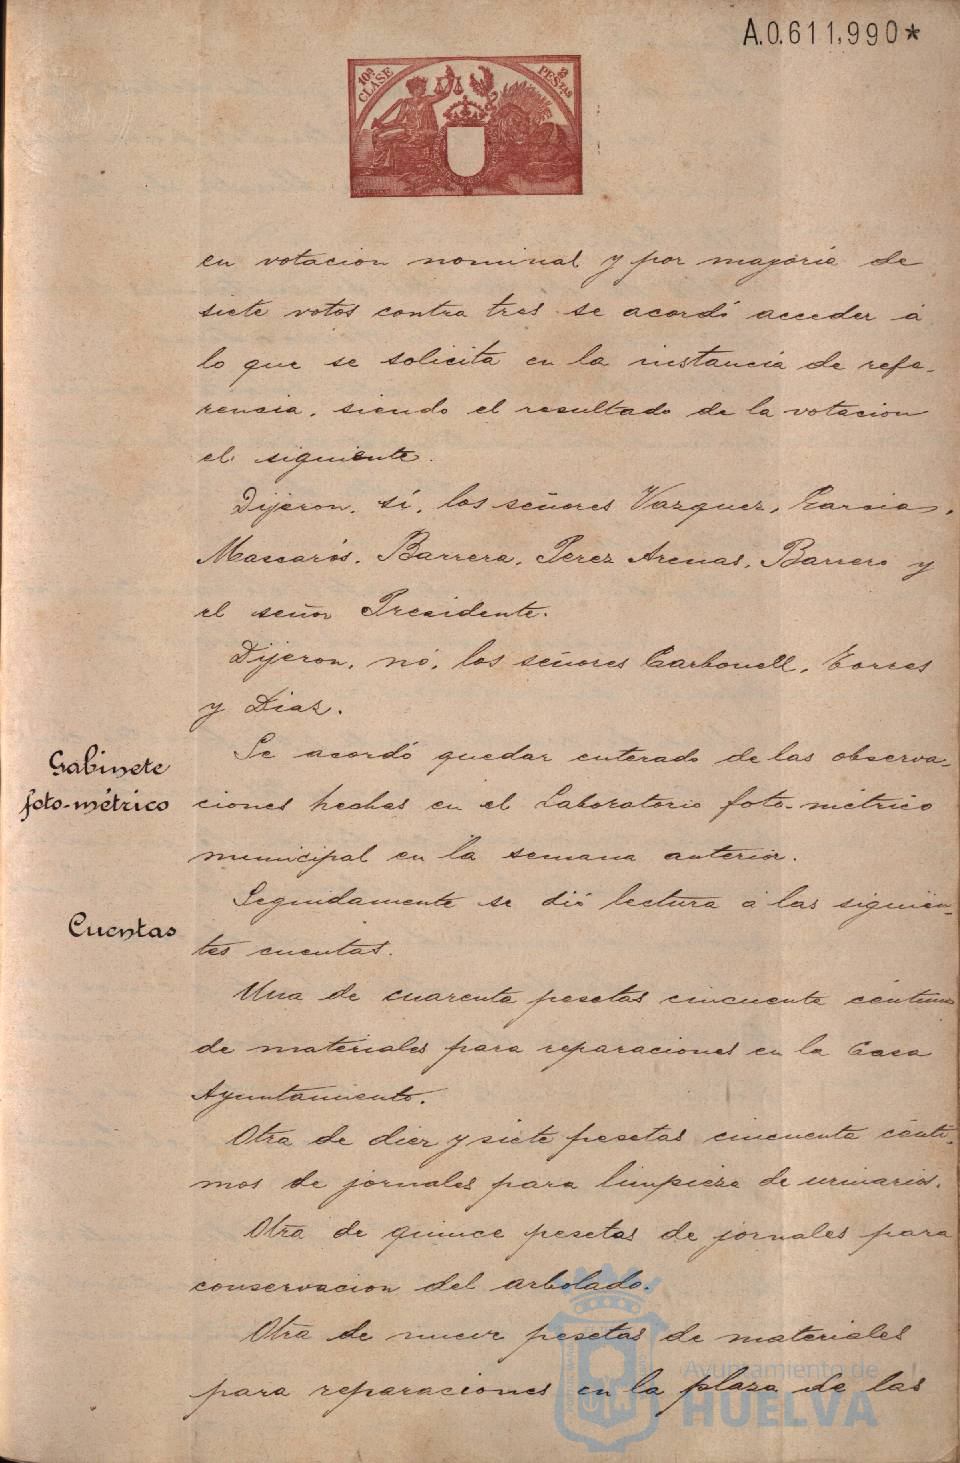 A.0.611,990*
10ª CLASE
2 PESTAS
en votacion nominal y por mayoria de
siete votos contra tres se acordó acceder á
lo que se solicita en la instancia de refe-
rencia, siendo el resultado de la votacion
el siguiente.
Dijeron, sí, los señores Vazquez, Garcia,
Mascarós, Barrera, Perez Arenas, Barrero y
el señor Presidente.
Dijeron, nó, los señores Carbonell, Torres
y Diaz.
Gabinete
foto-métrico
Se acordó quedar enterado de las observa-
ciones hechas en el Laboratorio foto-métrico
municipal en la semana anterior.
Cuentas
Seguidamente se dió lectura á las siguien-
tes cuentas.
Una de cuarenta pesetas cincuenta céntimos
de materiales para reparaciones en la Casa
Ayuntamiento.
Otra de diez y siete pesetas cincuenta cénti-
mos de jornales para limpieza de urinarios.
Otra de quince pesetas de jornales para
conservacion del arbolado.
Otra de nueve pesetas de materiales
para reparaciones en la plaza de las
Ayuntamiento de
HUELVA